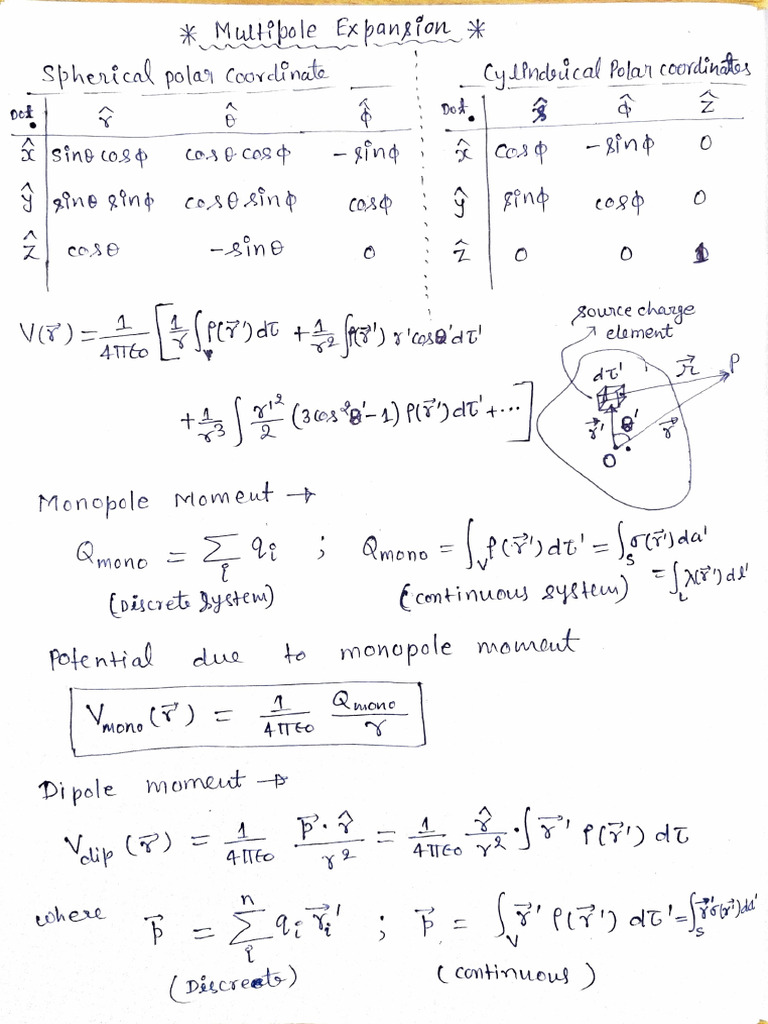 * Multipole Expansion *
Spherical polar Coordinate
Dot. r̂ θ̂ ϕ̂
x̂ sinθ cosϕ cosθ cosϕ -sinϕ
ŷ sinθ sinϕ cosθ sinϕ cosϕ
ẑ cosθ -sinθ 0
Cylinderical Polar coordinates
Dot. ŝ ϕ̂ ẑ
x̂ cosϕ -sinϕ 0
ŷ sinϕ cosϕ 0
ẑ 0 0 1
V(r⃗) = 1/4πϵ0 [ 1/r ∫_V ρ(r⃗')dτ + 1/r² ∫ρ(r⃗') r'cosθ'dτ'
+ 1/r³ ∫ r'²/2 (3cos²θ'-1) ρ(r⃗')dτ' + ... ]
source charge
element
dτ' r⃗ P
r⃗' θ' r⃗
O
Monopole Moment →
Qmono = Σ_i qi ; Qmono = ∫_V ρ(r⃗')dτ' = ∫_S σ(r⃗')da'
= ∫_L λ(r⃗')dl'
(Discrete System) (continuous system)
Potential due to monopole moment
Vmono(r⃗) = 1/4πϵ0 Qmono/r
Dipole moment →
Vdip(r⃗) = 1/4πϵ0 p⃗·r̂/r² = 1/4πϵ0 r̂/r² · ∫ r⃗' ρ(r⃗') dτ
where p⃗ = Σ_i^n qi r⃗i' ; p⃗ = ∫_V r⃗' ρ(r⃗') dτ' = ∫_S r⃗'σ(r⃗')da'
(Discreete) (continuous)